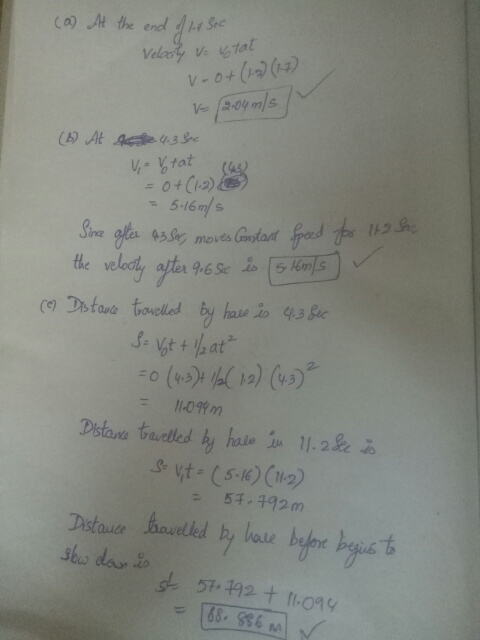 (a) At the end of 1.7 Sec
Velocity V = V₀+at
V = 0+(1.2)(1.7)
V= 2.04 m/s ✓
(b) At 4.3 Sec
V₁ = V₀+at
= 0+(1.2)(4.3)
= 5.16 m/s
Since after 4.3 Sec, moves Constant Speed for 11.2 Sec
the velocity after 9.6 Sec is 5.16 m/s ✓
(c) Distance travelled by hare is 4.3 Sec
S = V₀t + 1/2 at²
= 0 (4.3)+ 1/2 (1.2) (4.3)²
= 11.094 m
Distance travelled by hare in 11.2 Sec is
S = V₁t = (5.16) (11.2)
= 57.792 m
Distance travelled by hare before begins to
slow down is
S¹ = 57.792 + 11.094
= 68.886 m ✓